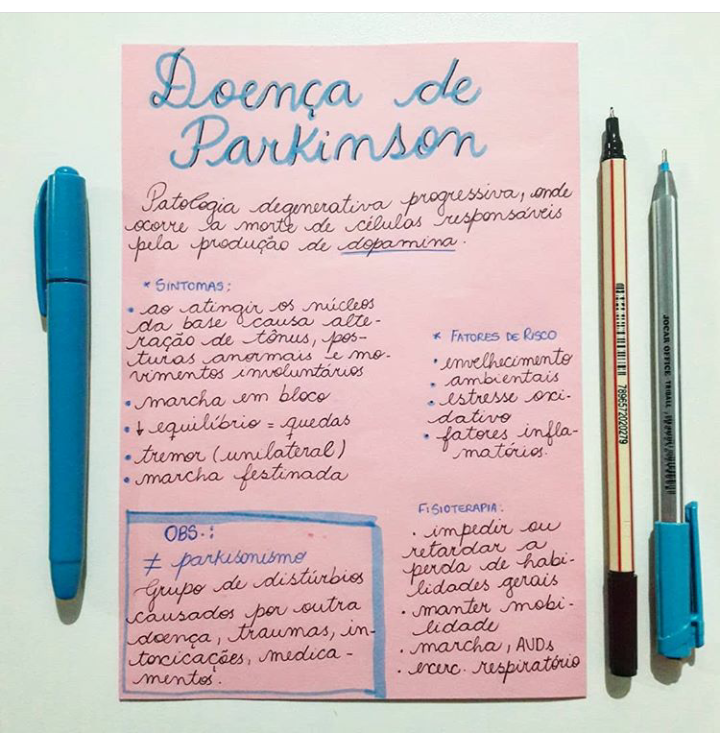 Doença de
Parkinson
Patologia degenerativa progressiva, onde
ocorre a morte de células responsáveis
pela produção de dopamina.
* SINTOMAS:
• ao atingir os núcleos
da base causa alte-
ração de tônus, pos-
turas anormais e mo-
vimentos involuntários
• marcha em bloco
• ↓ equilíbrio = quedas
• tremor (unilateral)
• marcha festinada
* FATORES DE RISCO
• envelhecimento
• ambientais
• estresse oxi-
dativo
• fatores infla-
matórios.
OBS.:
≠ parkisonismo
Grupo de distúrbios
causados por outra
doença, traumas, in-
toxicações, medica-
mentos.
FISIOTERAPIA:
• impedir ou
retardar a
perda de habi-
lidades gerais
• manter mobi-
lidade
• marcha, AVDs
• exerc. respiratório
7896572020279
JOCAR OFFICE